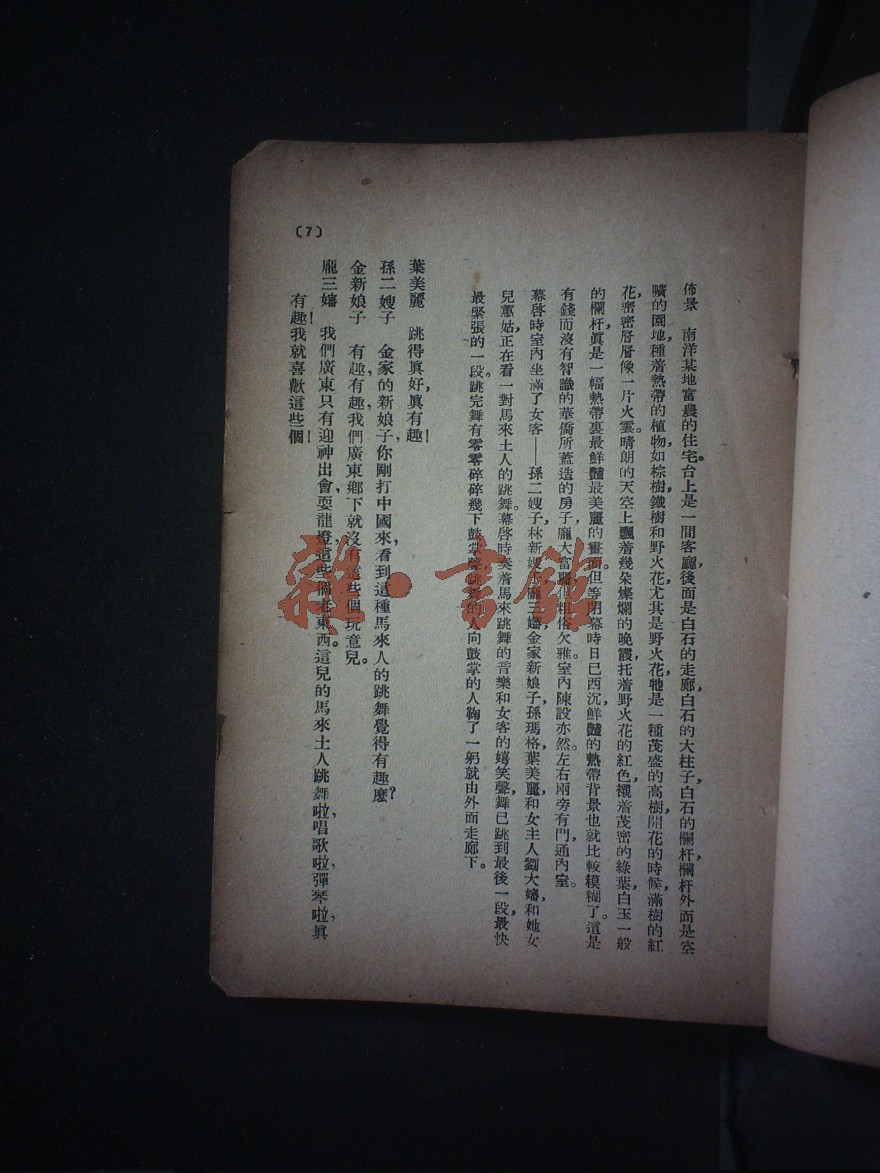 佈景　南洋某地富農的住宅。台上是一間客廳，後面是白石的走廊，白石的大柱子，白石的欄杆，欄杆外面是空
曠的園地，種着熱帶的植物，如棕樹，鐵樹和野火花，尤其是野火花，牠是一種茂盛的高樹，開花的時候，滿樹的紅
花，密密層層像一片火雲。晴朗的天空上，飄着幾朵燦爛的晚霞，托着野火花的紅色，襯着茂密的綠葉，白玉一般
的欄杆，眞是一幅熱帶裏最鮮豔最美麗的畫面。但等閉幕時日已西沉，鮮豔的熱帶背景也就比較模糊了。這是
有錢而沒有智識的華僑所蓋造的房子，龐大富麗，但粗俗欠雅，室內陳設亦然。左右兩旁有門通內室。
幕啓時室內坐滿了女客——孫二嫂子，林新嫂，龐三嬸，金家新娘子，孫瑪格，葉美麗，和女主人劉大嬸，和她女
兒蕙姑，正在看一對馬來土人的跳舞。幕啓時奏着馬來跳舞的音樂和女客的嬉笑聲，舞已跳到最後一段，最快
最緊張的一段。跳完舞有零零碎碎幾下鼓掌聲，跳舞的人向鼓掌的人鞠了一躬就由外面走廊下。
葉美麗　跳得眞好，眞有趣！
孫二嫂子　金家的新娘子，你剛打中國來，看到這種馬來人的跳舞覺得有趣麼？
金新娘子　有趣，有趣，我們廣東鄉下就沒有這些個玩意兒。
龐三嬸　我們廣東只有迎神出會，耍龍燈，這些個老東西。這兒的馬來土人跳舞啦，唱歌啦，彈琴啦，眞
有趣！我就喜歡這些個！
(7)
雜·書館